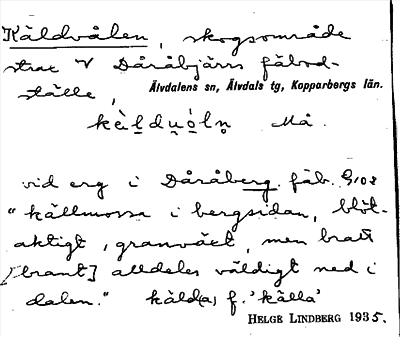 Käldvålen, skogsområde
strax V Dåråbjärs fäbod-
ställe,
Älvdalens sn, Älvdals tg, Kopparbergs län.
Må
vid erg i Dåråberg. fäb.
"källmossa i bergsidan, blöt-
aktigt, granväxt, men bratt
[brant] alldeles väldigt ned i
dalen." käld(a) f. 'källa'
HELGE LINDBERG 1935.